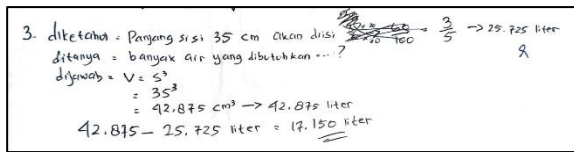 3. diketahui = Panjang sisi 35 cm akan diisi = 3/5 → 25.725 liter
ditanya = banyak air yang dibutuhkan ... ?
dijawab = V = s³
= 35³
= 42.875 cm³ → 42.875 liter
42.875 - 25.725 liter = 17.150 liter